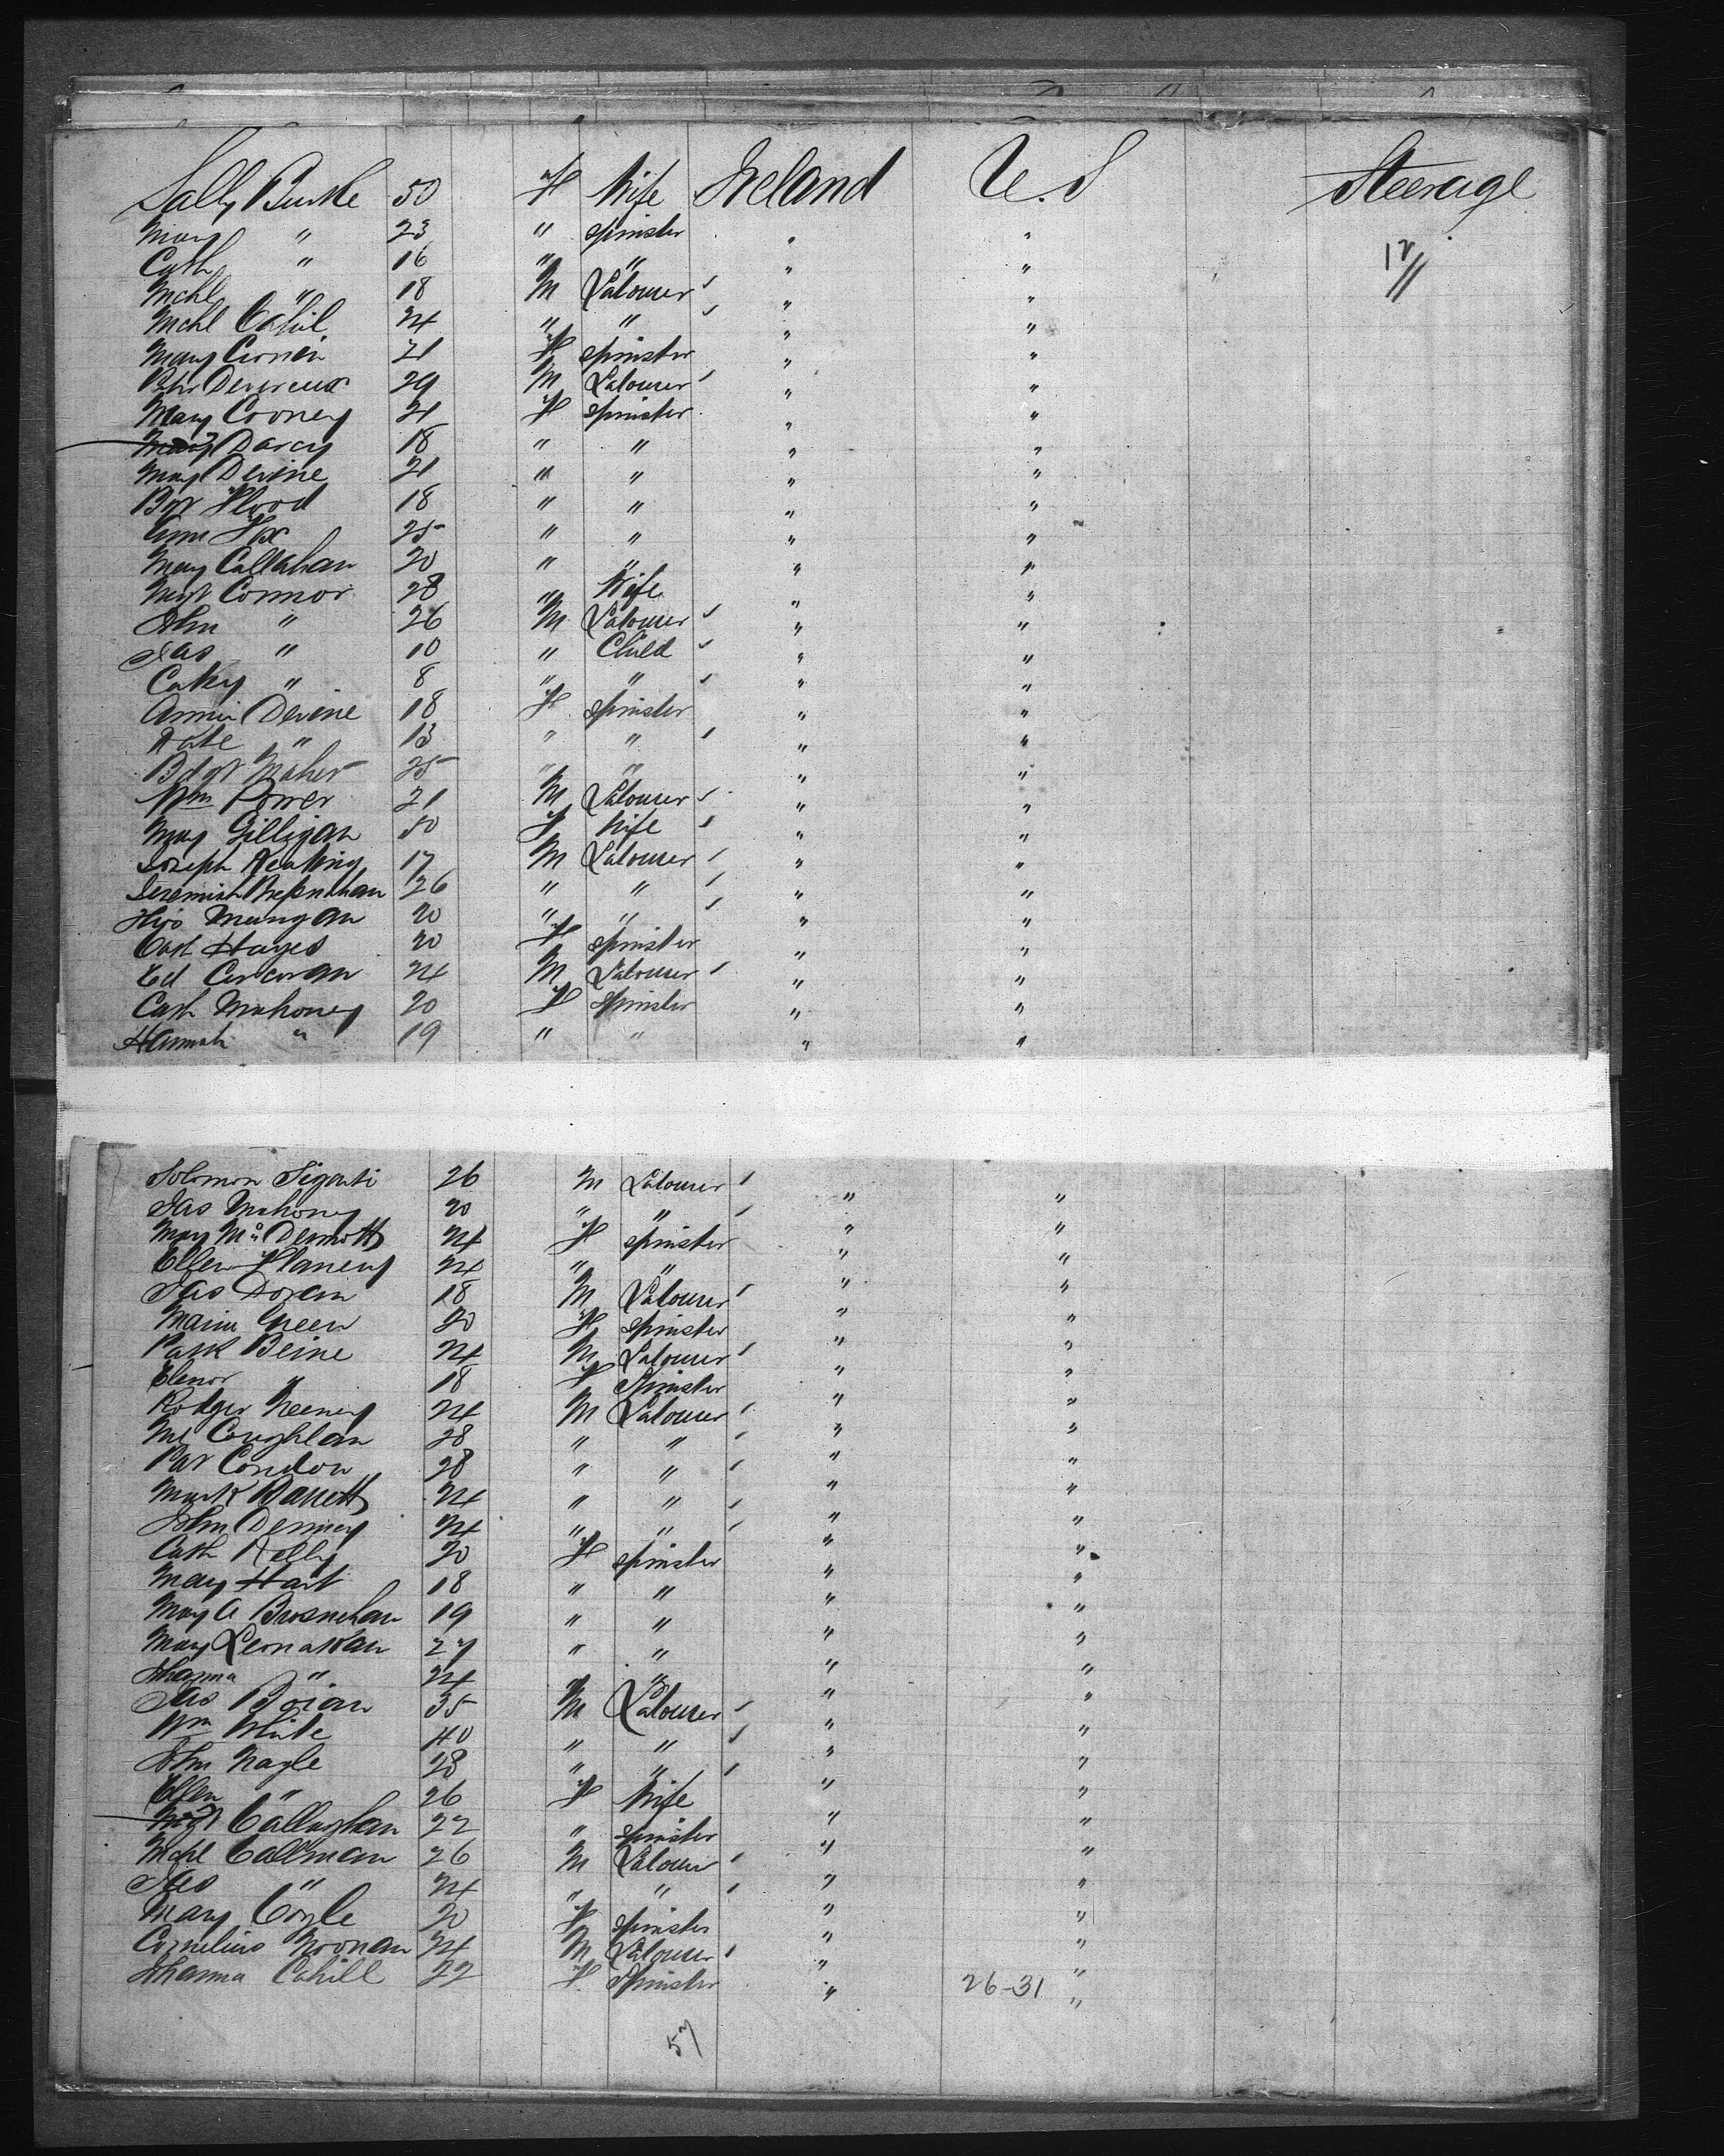 Sally Burke 50 F Wife Ireland U.S Steerage
Mary " 23 " Spinster " "
Cath " 16 " " " "
Mchl " 18 M Labourer " "
Mchl Cahil 24 " " " "
Mary Cronin 21 F Spinster " "
Peter Devereux 29 M Labourer " "
Mary Cooney 21 F Spinster " "
Mary Darcy 18 " " " "
Mary Devine 21 " " " "
Bgt Flood 18 " " " "
Ann Fox 25 " " " "
Mary Callahan 20 " " " "
Mgt Connor 28 " Wife " "
John " 26 M Labourer " "
Jas " 10 " Child " "
" 8 " " " "
Annie Devine 18 F Spinster " "
Kate " 13 " " " "
Bdgt Maher 25 " " " "
Wm Power 21 M Labourer " "
Mary Gilligan 50 F Wife " "
Joseph Keating 17 M Labourer " "
Jeremiah 26 " " " "
Mungan 20 " " " "
Cath Hayes 20 F Spinster " "
Ed Corcoran 24 M Labourer " "
Cath Mahoney 20 F Spinster " "
Hannah " 19 " " " "
Solomon 26 M Labourer " "
Jas Mahoney 20 " " " "
Mary McDermott 24 F Spinster " "
Ellen Flanery 24 " " " "
Jas Doran 18 M Labourer " "
Maria Green 20 F Spinster " "
Patk Beine 24 M Labourer " "
Elenor " 18 F Spinster " "
Rodger Neeney 24 M Labourer " "
Ml Coughlan 28 " " " "
Pat Condon 28 " " " "
Mark Barrett 24 " " " "
John Denney 24 " " " "
Cath Kelly 20 F Spinster " "
Mary Hart 18 " " " "
Mary A Brosnehan 19 " " " "
Mary 27 " " " "
Johanna " 24 " " " "
Jas 35 M Labourer " "
Wm White 40 " " " "
John Nagle 28 " " " "
Ellen " 26 F Wife " "
Mgt Callaghan 22 " Spinster " "
Mchl Callinan 26 M Labour " "
Jas " 24 " " " "
Mary Coyle 20 F Spinster " "
Cornelius Noonan 24 M Labourer " "
Johanna Cahill 22 F Spinster " "
26-31
57